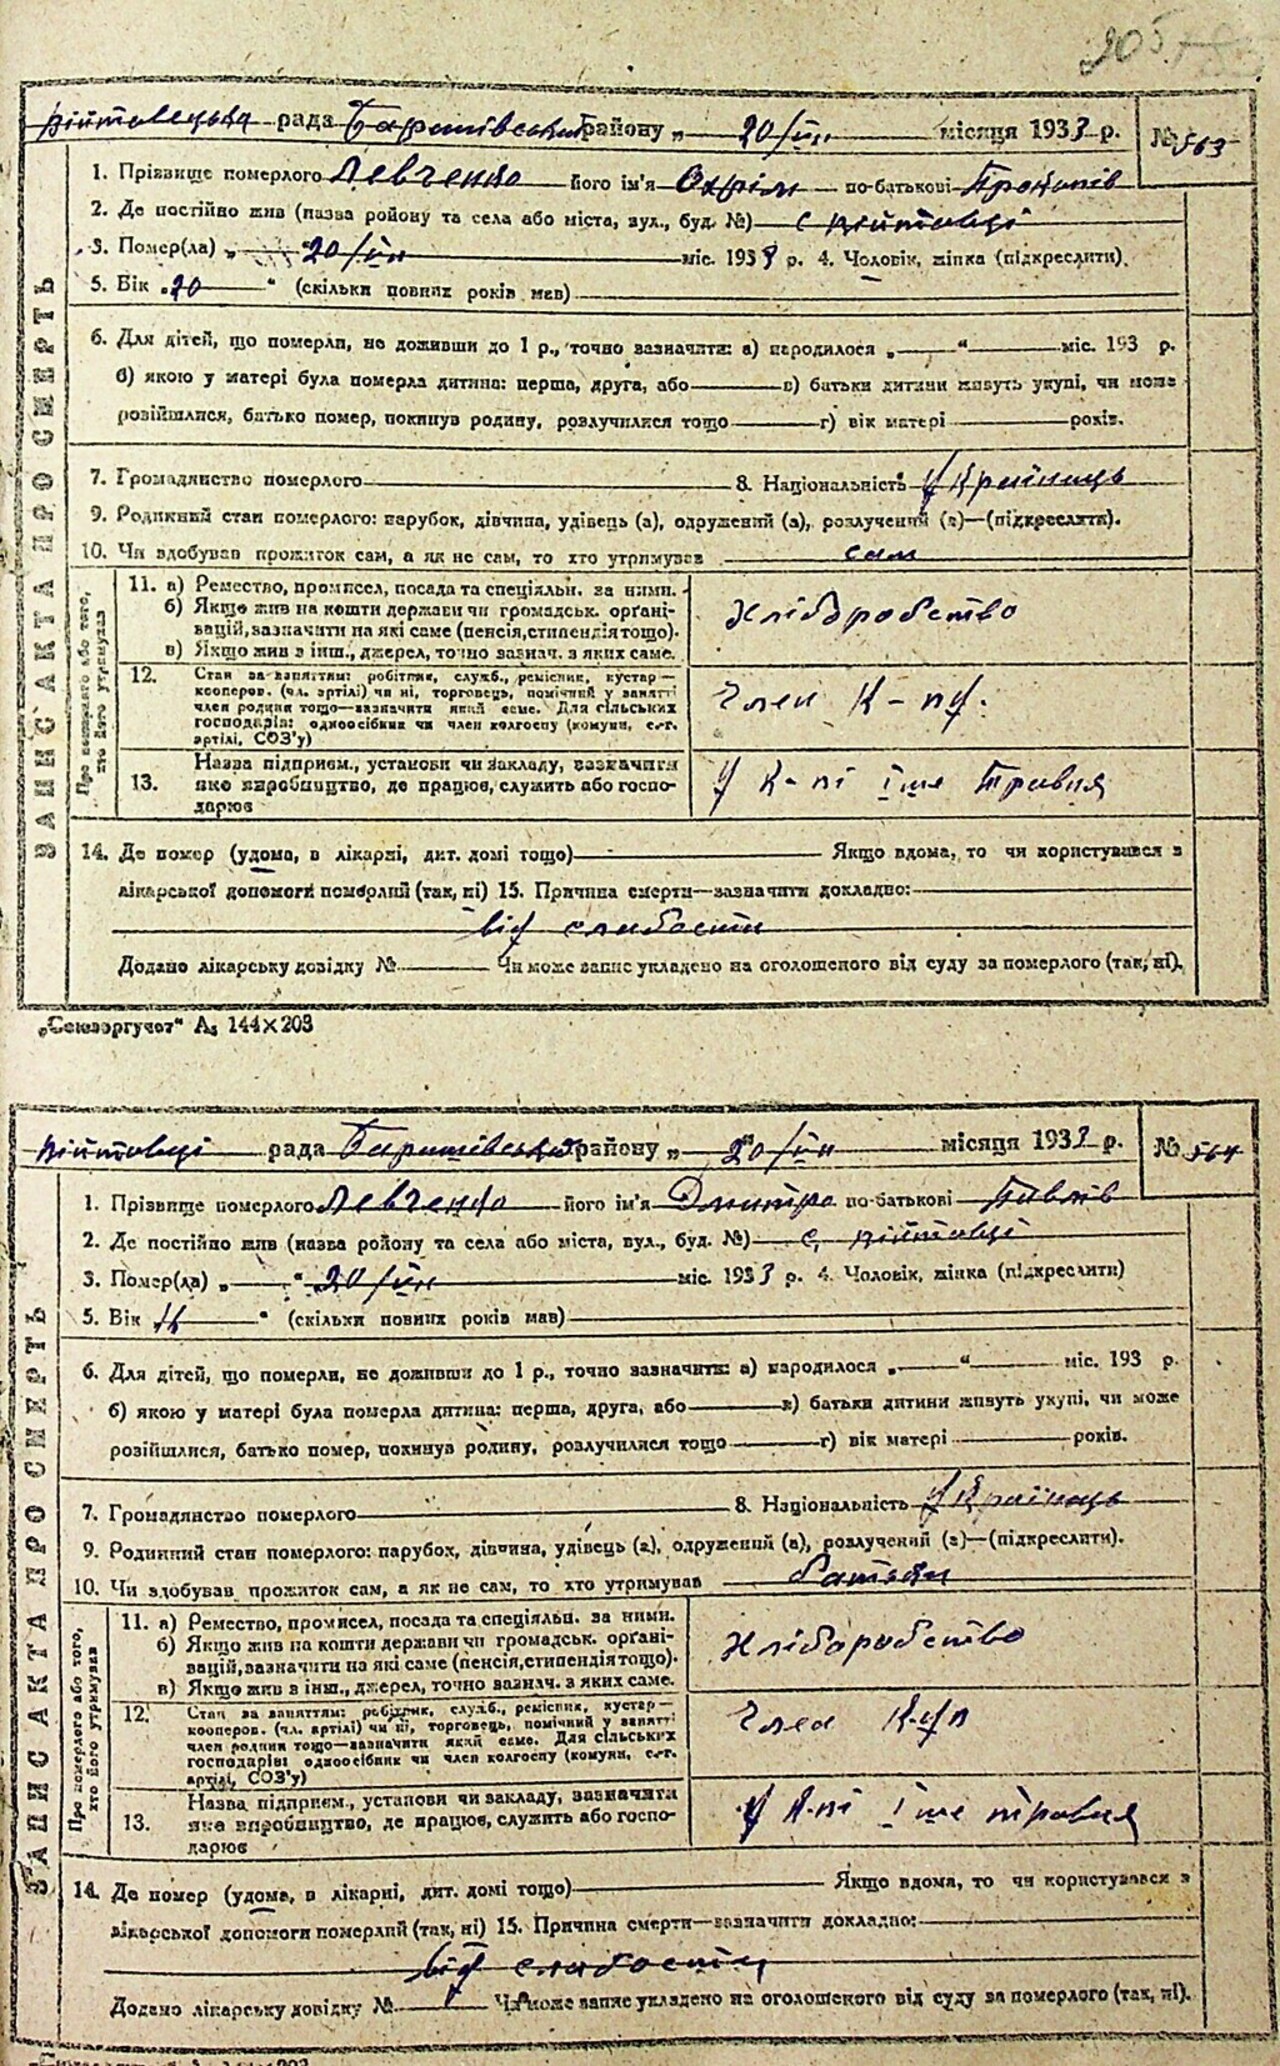 205
Війтовецька рада Баришівського району „ 20/VII місяця 1933 р. № 563
1. Прізвище померлого Левченко його ім'я Охрім по-батькові Прокопів
2. Де постійно жив (назва району та села або міста, вул., буд. №) с Війтовці
3. Помер(ла) „ 20/VII міс. 1933 р. 4. Чоловік, жінка (підкреслити).
5. Вік „20 “ (скільки повних років мав)
6. Для дітей, що померли, не доживши до 1 р., точно зазначити: а) народилося „ “ міс. 193 р.
б) якою у матері була померла дитина: перша, друга, або в) батьки дитини живуть укупі, чи може
розійшлися, батько помер, покинув родину, розлучилися тощо г) вік матері років.
7. Громадянство померлого 8. Національність Українець
9. Родинний стан померлого: парубок, дівчина, удівець (а), одружений (а), розлучений (а)—(підкреслити).
10. Чи здобував прожиток сам, а як не сам, то хто утримував сам
ЗАПИС АКТА ПРО СМЕРТЬ
Про померлого або того, хто його утримував
11. а) Ремество, промисел, посада та спеціяльн. за ними.
б) Якщо жив на кошти держави чи громадськ. орґані-
зацій, зазначити на які саме (пенсія, стипендія тощо).
в) Якщо жив з інш., джерел, точно зазнач. з яких саме.
Хліборобство
12. Стан за заняттям: робітник, служб., ремісник, кустар—
кооперов. (чл. артілі) чи ні, торговець, помічний у занятті
член родини тощо—зазначити який саме. Для сільських
господарів: одноосібник чи член колгоспу (комуни, с.-г.
артілі, СОЗ'у)
Член К-пу.
13. Назва підприєм., установи чи закладу, зазначити
яке виробництво, де працює, служить або госпо-
дарює
У К-пі іме Травня
14. Де помер (удома, в лікарні, дит. домі тощо) Якщо вдома, то чи користувався з
лікарської допомоги померлий (так, ні) 15. Причина смерти—зазначити докладно:
від слабости
Додано лікарську довідку № Чи може запис укладено на оголошеного від суду за померлого (так, ні).
„Союзоргучот“ А₅ 144×203
Війтовці рада Баришівського району „ 20/VII місяця 1933 р. № 564
1. Прізвище померлого Левченко його ім'я Дмитро по-батькові Павлів
2. Де постійно жив (назва району та села або міста, вул., буд. №) с, Війтовці
3. Помер(ла) „ “ 20/VII міс. 1933 р. 4. Чоловік, жінка (підкреслити)
5. Вік “ (скільки повних років мав)
6. Для дітей, що померли, не доживши до 1 р., точно зазначити: а) народилося „ “ міс. 193 р.
б) якою у матері була померла дитина: перша, друга, або в) батьки дитини живуть укупі, чи може
розійшлися, батько помер, покинув родину, розлучилися тощо г) вік матері років.
7. Громадянство померлого 8. Національність Українець
9. Родинний стан померлого: парубок, дівчина, удівець (а), одружений (а), розлучений (а)—(підкреслити).
10. Чи здобував прожиток сам, а як не сам, то хто утримував батьки
ЗАПИС АКТА ПРО СМЕРТЬ
Про померлого або того, хто його утримував
11. а) Ремество, промисел, посада та спеціяльн. за ними.
б) Якщо жив на кошти держави чи громадськ. орґані-
зацій, зазначити на які саме (пенсія, стипендія тощо).
в) Якщо жив з інш., джерел, точно зазнач. з яких саме.
Хліборобство
12. Стан за заняттям: робітник, служб., ремісник, кустар—
кооперов. (чл. артілі) чи ні, торговець, помічний у занятті
член родини тощо—зазначити який саме. Для сільських
господарів: одноосібник чи член колгоспу (комуни, с.-г.
артілі, СОЗ'у)
Член
13. Назва підприєм., установи чи закладу, зазначити
яке виробництво, де працює, служить або госпо-
дарює
У К-пі іме травня
14. Де помер (удома, в лікарні, дит. домі тощо) Якщо вдома, то чи користувався з
лікарської допомоги померлий (так, ні) 15. Причина смерти—зазначити докладно:
від слабости
Додано лікарську довідку № Чи може запис укладено на оголошеного від суду за померлого (так, ні).